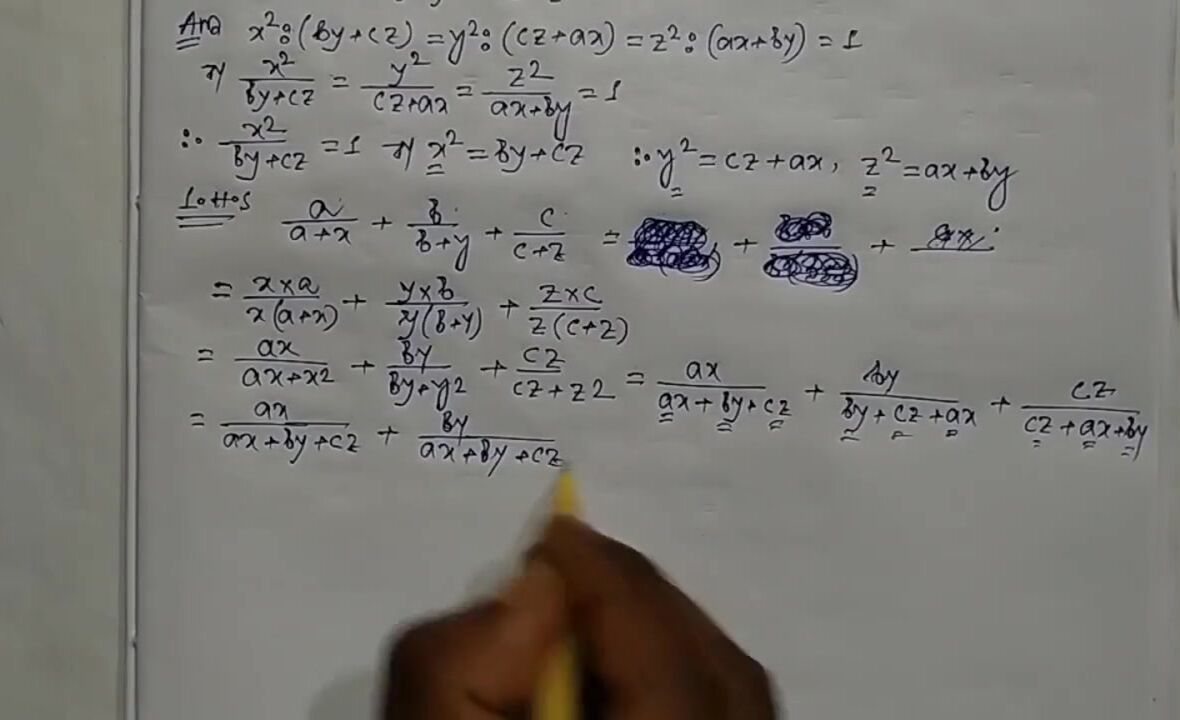 Ans x²:(by+cz) = y²:(cz+ax) = z²:(ax+by) = 1
⇒ x²/(by+cz) = y²/(cz+ax) = z²/(ax+by) = 1
∴ x²/(by+cz) = 1 ⇒ x² = by+cz ∴ y² = cz+ax, z² = ax+by
L.H.S a/(a+x) + b/(b+y) + c/(c+z) = + +
= x×a/x(a+x) + y×b/y(b+y) + z×c/z(c+z)
= ax/(ax+x2) + by/(by+y2) + cz/(cz+z2) = ax/(ax+by+cz) + by/(by+cz+ax) + cz/(cz+ax+by)
= ax/(ax+by+cz) + by/(ax+by+cz)